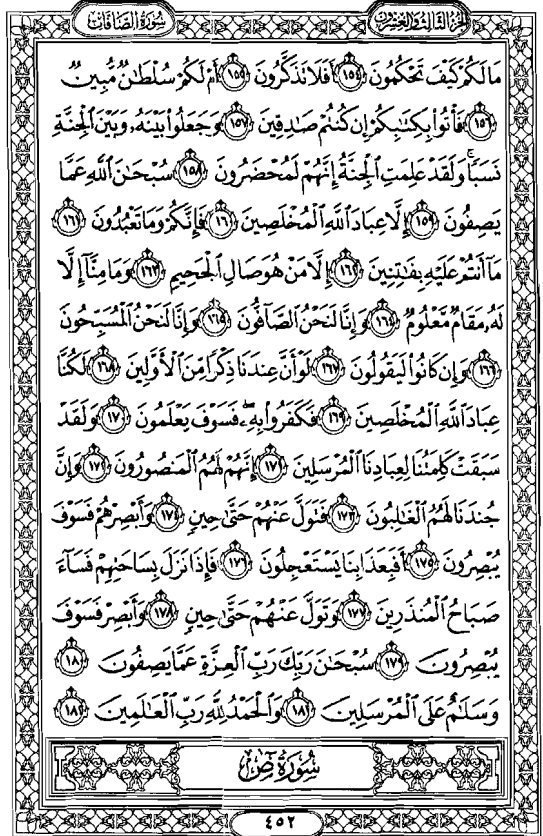 سُورَةُ الصَّافَّاتِ
الجُزْءُ الثَّالِثُ وَالعِشْرُونَ
مَا لَكُمْ كَيْفَ تَحْكُمُونَ ١٥٤ أَفَلَا تَذَكَّرُونَ ١٥٥ أَمْ لَكُمْ سُلْطَٰنٌ مُّبِينٌ
١٥٦ فَأْتُوا۟ بِكِتَٰبِكُمْ إِن كُنتُمْ صَٰدِقِينَ ١٥٧ وَجَعَلُوا۟ بَيْنَهُۥ وَبَيْنَ ٱلْجِنَّةِ
نَسَبًا ۚ وَلَقَدْ عَلِمَتِ ٱلْجِنَّةُ إِنَّهُمْ لَمُحْضَرُونَ ١٥٨ سُبْحَٰنَ ٱللَّهِ عَمَّا
يَصِفُونَ ١٥٩ إِلَّا عِبَادَ ٱللَّهِ ٱلْمُخْلَصِينَ ١٦٠ فَإِنَّكُمْ وَمَا تَعْبُدُونَ ١٦١
مَآ أَنتُمْ عَلَيْهِ بِفَٰتِنِينَ ١٦٢ إِلَّا مَنْ هُوَ صَالِ ٱلْجَحِيمِ ١٦٣ وَمَا مِنَّآ إِلَّا
لَهُۥ مَقَامٌ مَّعْلُومٌ ١٦٤ وَإِنَّا لَنَحْنُ ٱلصَّآفُّونَ ١٦٥ وَإِنَّا لَنَحْنُ ٱلْمُسَبِّحُونَ
١٦٦ وَإِن كَانُوا۟ لَيَقُولُونَ ١٦٧ لَوْ أَنَّ عِندَنَا ذِكْرًا مِّنَ ٱلْأَوَّلِينَ ١٦٨ لَكُنَّا
عِبَادَ ٱللَّهِ ٱلْمُخْلَصِينَ ١٦٩ فَكَفَرُوا۟ بِهِۦ ۖ فَسَوْفَ يَعْلَمُونَ ١٧٠ وَلَقَدْ
سَبَقَتْ كَلِمَتُنَا لِعِبَادِنَا ٱلْمُرْسَلِينَ ١٧١ إِنَّهُمْ لَهُمُ ٱلْمَنصُورُونَ ١٧٢ وَإِنَّ
جُندَنَا لَهُمُ ٱلْغَٰلِبُونَ ١٧٣ فَتَوَلَّ عَنْهُمْ حَتَّىٰ حِينٍ ١٧٤ وَأَبْصِرْهُمْ فَسَوْفَ
يُبْصِرُونَ ١٧٥ أَفَبِعَذَابِنَا يَسْتَعْجِلُونَ ١٧٦ فَإِذَا نَزَلَ بِسَاحَتِهِمْ فَسَآءَ
صَبَاحُ ٱلْمُنذَرِينَ ١٧٧ وَتَوَلَّ عَنْهُمْ حَتَّىٰ حِينٍ ١٧٨ وَأَبْصِرْ فَسَوْفَ
يُبْصِرُونَ ١٧٩ سُبْحَٰنَ رَبِّكَ رَبِّ ٱلْعِزَّةِ عَمَّا يَصِفُونَ ١٨٠
وَسَلَٰمٌ عَلَى ٱلْمُرْسَلِينَ ١٨١ وَٱلْحَمْدُ لِلَّهِ رَبِّ ٱلْعَٰلَمِينَ ١٨٢
سُورَةُ صٓ
٤٥٢